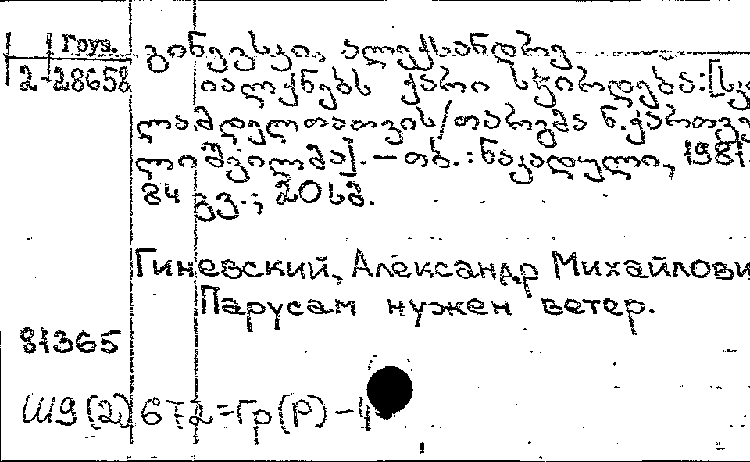 Груз. გინევსკი, ალექსანდრე
2-28658 იალქნებს ქარი სჭირდება: [სკო
ლამდელთათვის/თარგმა ნ. ქართვე
ლიშვილმა]. — თბ.: ნაკადული, 1981.
84 გვ.; 20 სმ.
Гиневский, Александр Михайлови
Парусам нужен ветер.
81365
Ш9(2)672=Гр(Р)-4